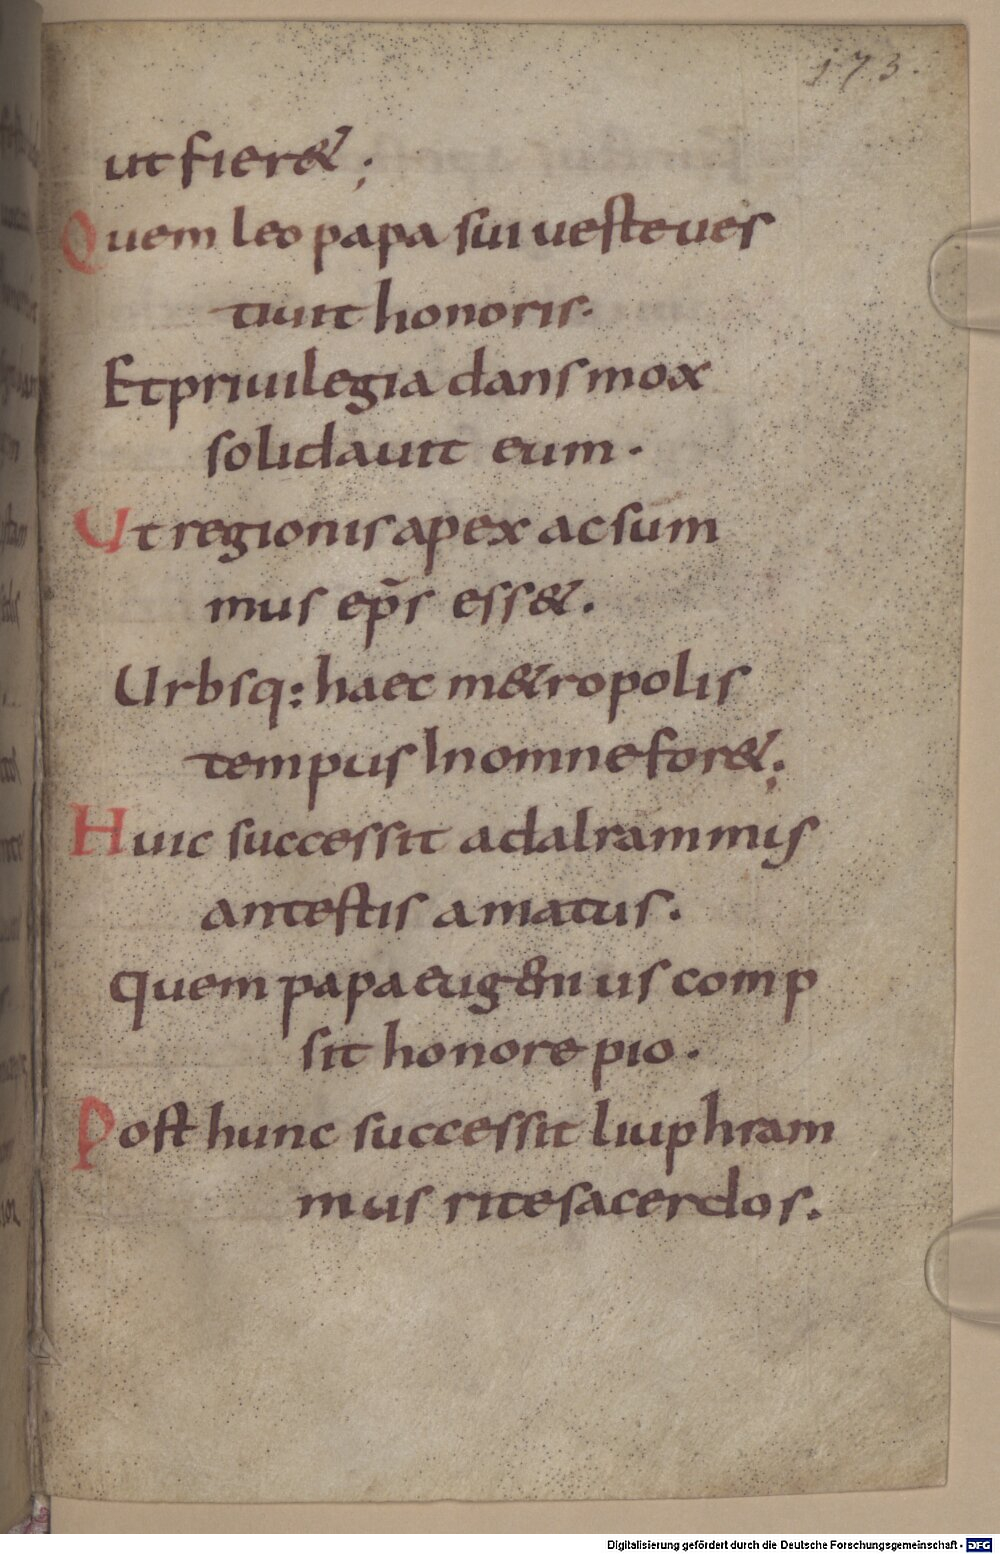 173.
ut fier&;
Quem leo papa sui ueste ues
tiuit honoris.
Et priuilegia dans mox
solidauit eum.
Ut regionis apex ac sum
mus ep̄s ess&.
Urbsq: haec m&ropolis
tempus In omne for&;
Huic successit adalrammus
antestis amatus.
quem papa eugenius comp
sit honore pio.
Post hunc successit liuphram
mus rite sacerdos.
Digitalisierung gefördert durch die Deutsche Forschungsgemeinschaft - DFG